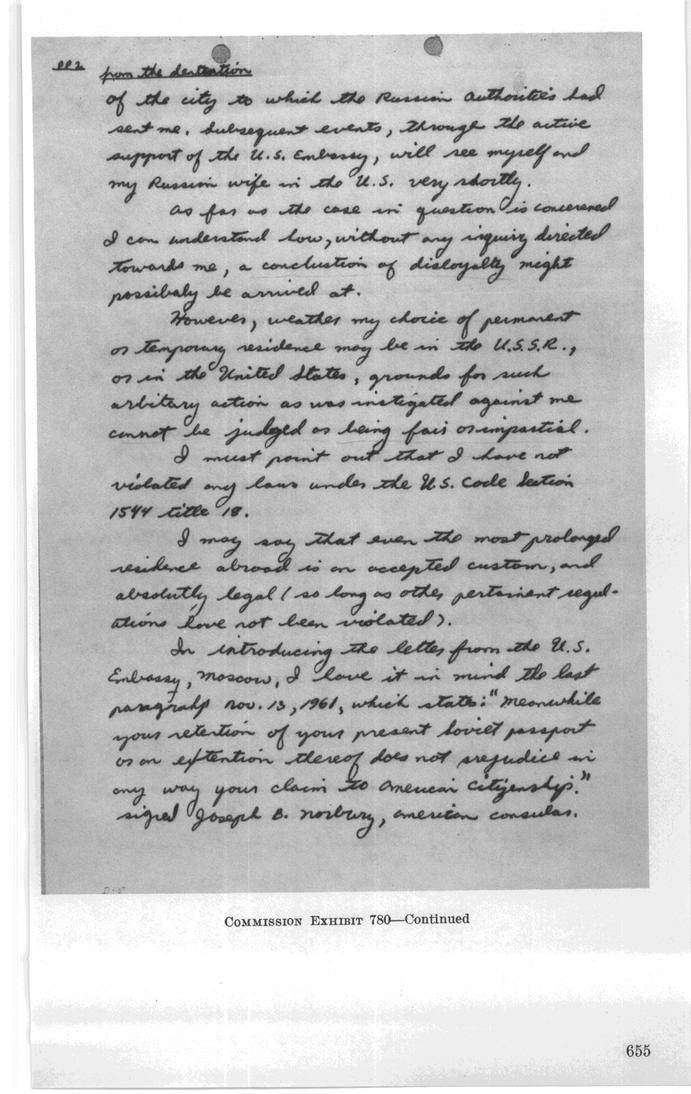 PP2 from the destention
of the city to which the Russian authorities had
sent me. Subsequent events, through the active
support of the U.S. Embassy, will see myself and
my Russian wife in the U.S. very shortly.
As far as the case in question is concerened
I can understand how, without any inquiry directed
towards me, a conclustion of disloyalty might
possibaly be arrived at.
However, weather my choice of permanent
or temporary residence may be in the U.S.S.R.,
or in the United States, grounds for such
arbitary action as was instigated against me
cannot be judged as being fair or impartial.
I must point out that I have not
violated any laws under the U.S. Code Section
1544 title 18.
I may say that even the most prolonged
residence abroad is an accepted custom, and
absolutly legal (so long as other pertainent regul-
ations have not been violated).
In introducing the letter from the U.S.
Embassy, Moscow, I have it in mind the last
paragraph nov. 13, 1961, which stats: "Meanwhile
your retention of your present Soviet passport
or an extention thereof does not prejudice in
any way your claim to American Citizenship."
signed Joseph B. Norbury, american consular.
COMMISSION EXHIBIT 780—Continued
655